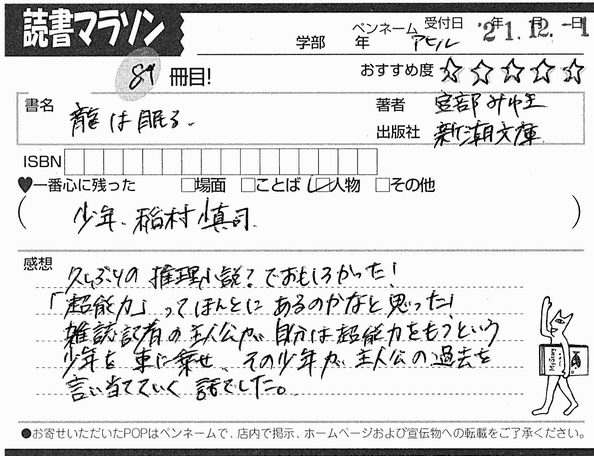 読書マラソン
学部 年 ペンネーム アヒル 受付日 '21年12月-1日
89 冊目!
おすすめ度 ☆☆☆☆☆
書名 龍は眠る。
著者 宮部みゆき
出版社 新潮文庫
ISBN
♥一番心に残った □場面 □ことば ☑人物 □その他
( 少年、稲村慎司 )
感想
久しぶりの推理小説?でおもしろかった!
「超能力」ってほんとにあるのかなと思った!
雑誌記者の主人公が、自分は超能力をもうという
少年を車に乗せ、その少年が主人公の過去を
言い当てていく話でした。
My Story
●お寄せいただいたPOPはペンネームで、店内で掲示、ホームページおよび宣伝物への転載をご了承ください。